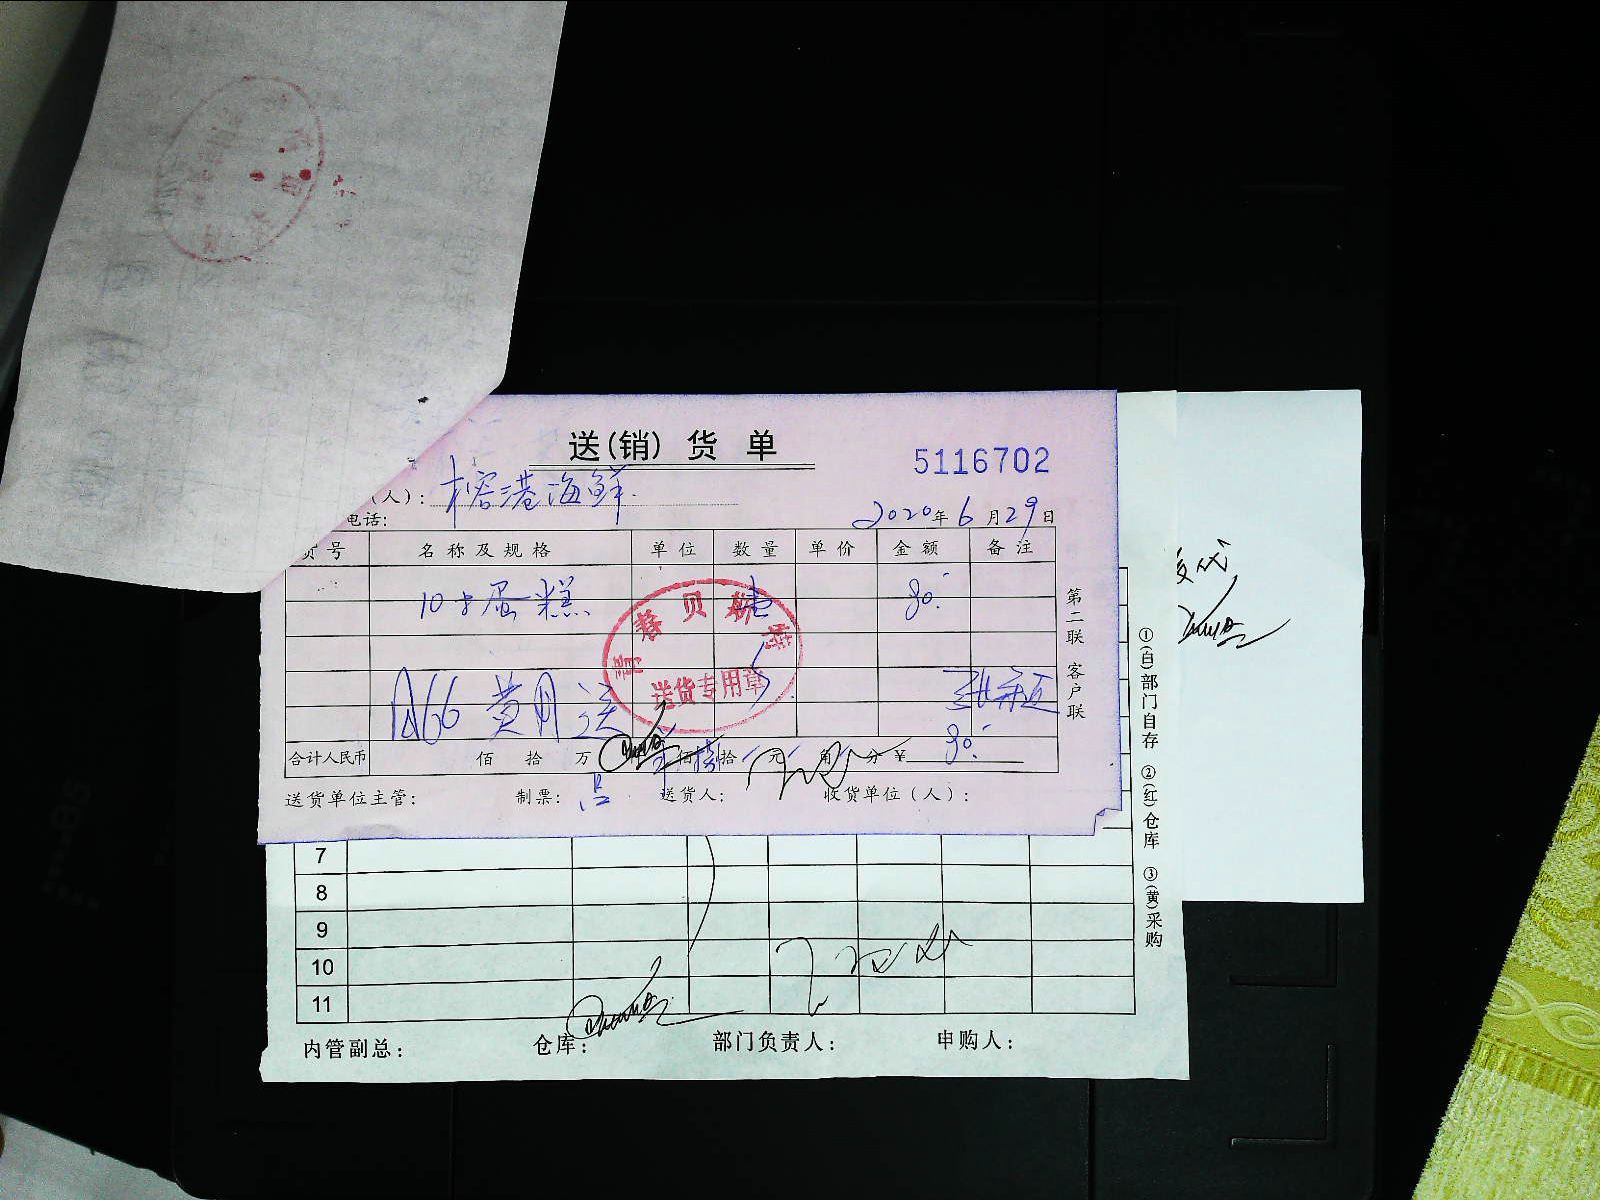 送(销) 货 单
5116702
(人): 榕港海鲜
电话:
2020年6月29日
货号 名称及规格 单位 数量 单价 金额 备注
10寸蛋糕 壹 80.
贝
送货专用章
A66 黄月送
合计人民币 佰 拾 万 仟 佰 捌 拾 元 角 分 ¥ 80.
送货单位主管: 制票: 送货人: 收货单位(人):
第二联 客户联
7
8
9
10
11
内管副总: 仓库: 部门负责人: 申购人:
①(自)部门自存 ②(红)仓库 ③(黄)采购